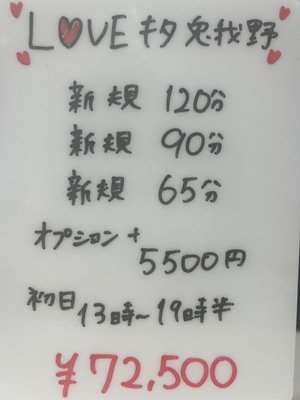 LOVE キタ兎我野
新規 120分
新規 90分
新規 65分
オプション +
5500円
初日 13時~19時半
¥72,500